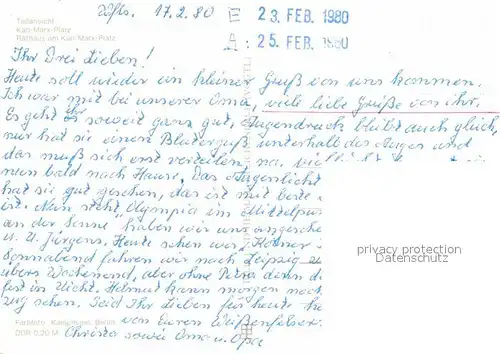 Wfls. 17.2.80
E 23. FEB. 1980
A: 25. FEB. 1980
Teilansicht
Karl-Marx-Platz
Rathaus am Karl-Marx-Platz
Ihr Drei Lieben!
Heute soll wieder ein kleiner Gruß von uns kommen.
Ich war mit bei unserer Oma, viele liebe Grüße von ihr.
Es geht ihr soweit ganz gut, Augendruck bleibt auch gleich,
nur hat sie einen Bluterguß unterhalb des Auges und
das muß sich erst verteilen, na,
nun bald nach Hause. Das Augenlicht
hat sie gut gesehen, das ist mit beste
ist. Nun steht "Olympia im Mittelpun
an der Sonne haben wir uns angesche
u. U. Jürgens. Heute sehen wir
Sonnabend fahren wir nach Leipzig
übers Wochenend, aber ohne Petra denn d
fest in Sicht. Helmut kann morgen noch
zug sehen. Seid Ihr Lieben für heute
von Euren Weißenfelsern
Christa sowie Oma u. Opa
privacy protection
Datenschutz
DDR 0,20 M